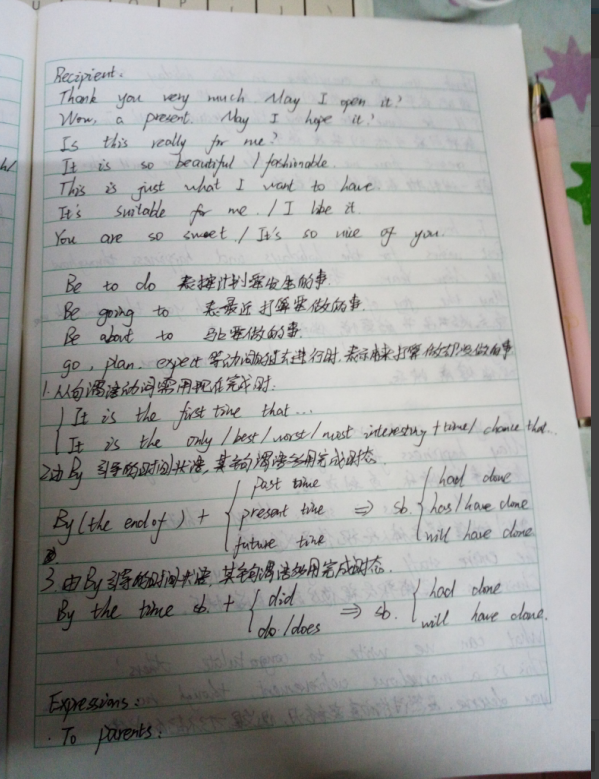 Recipient:
Thank you very much May I open it?
Wow, a present. May I hope it?
Is this really for me?
It is so beautiful / fashionable.
This is just what I want to have
It's suitable for me. / I like it.
You are so sweet / It's so nice of you.
Be to do 表按计划要发生的事.
Be going to 表最近打算要做的事.
Be about to 马上要做的事.
go, plan, expect 等动词的过去进行时, 表示本来打算做却没做的事
1. 从句谓语动词需用现在完成时:
It is the first time that...
It is the only / best / worst / most interesting + time / chance that...
2. 由By 引导的时间状语, 其主句谓语多用完成时态.
By (the end of) + { past time ⇒ sb. { had done
present time has/have done
future time will have done
3. 由By引导的时间状语, 其主句谓语多用完成时态.
By the time sb. + { did ⇒ sb. { had done
do/does will have done.
Expressions:
· To parents: